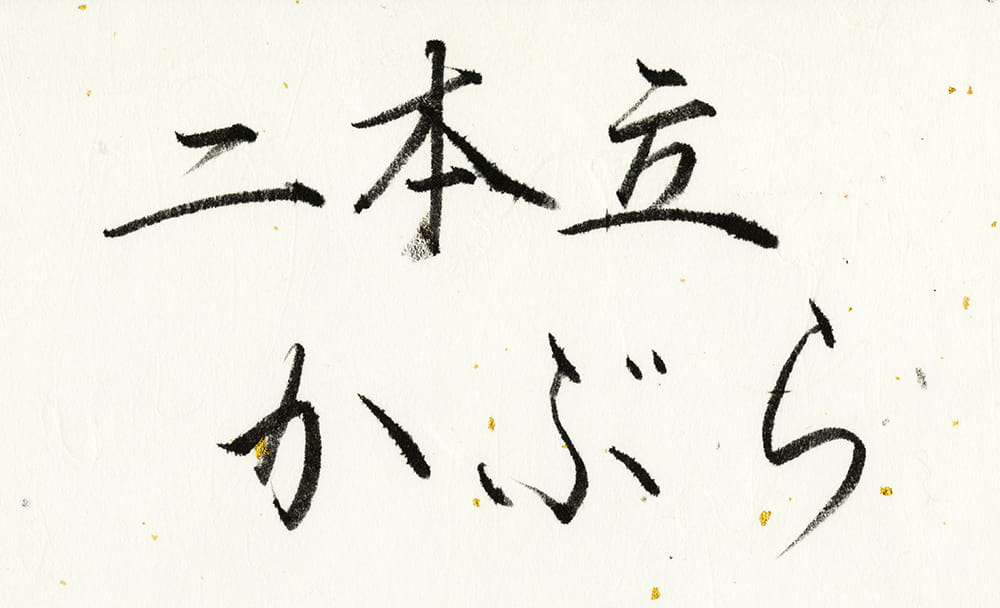 二本立
かぶら